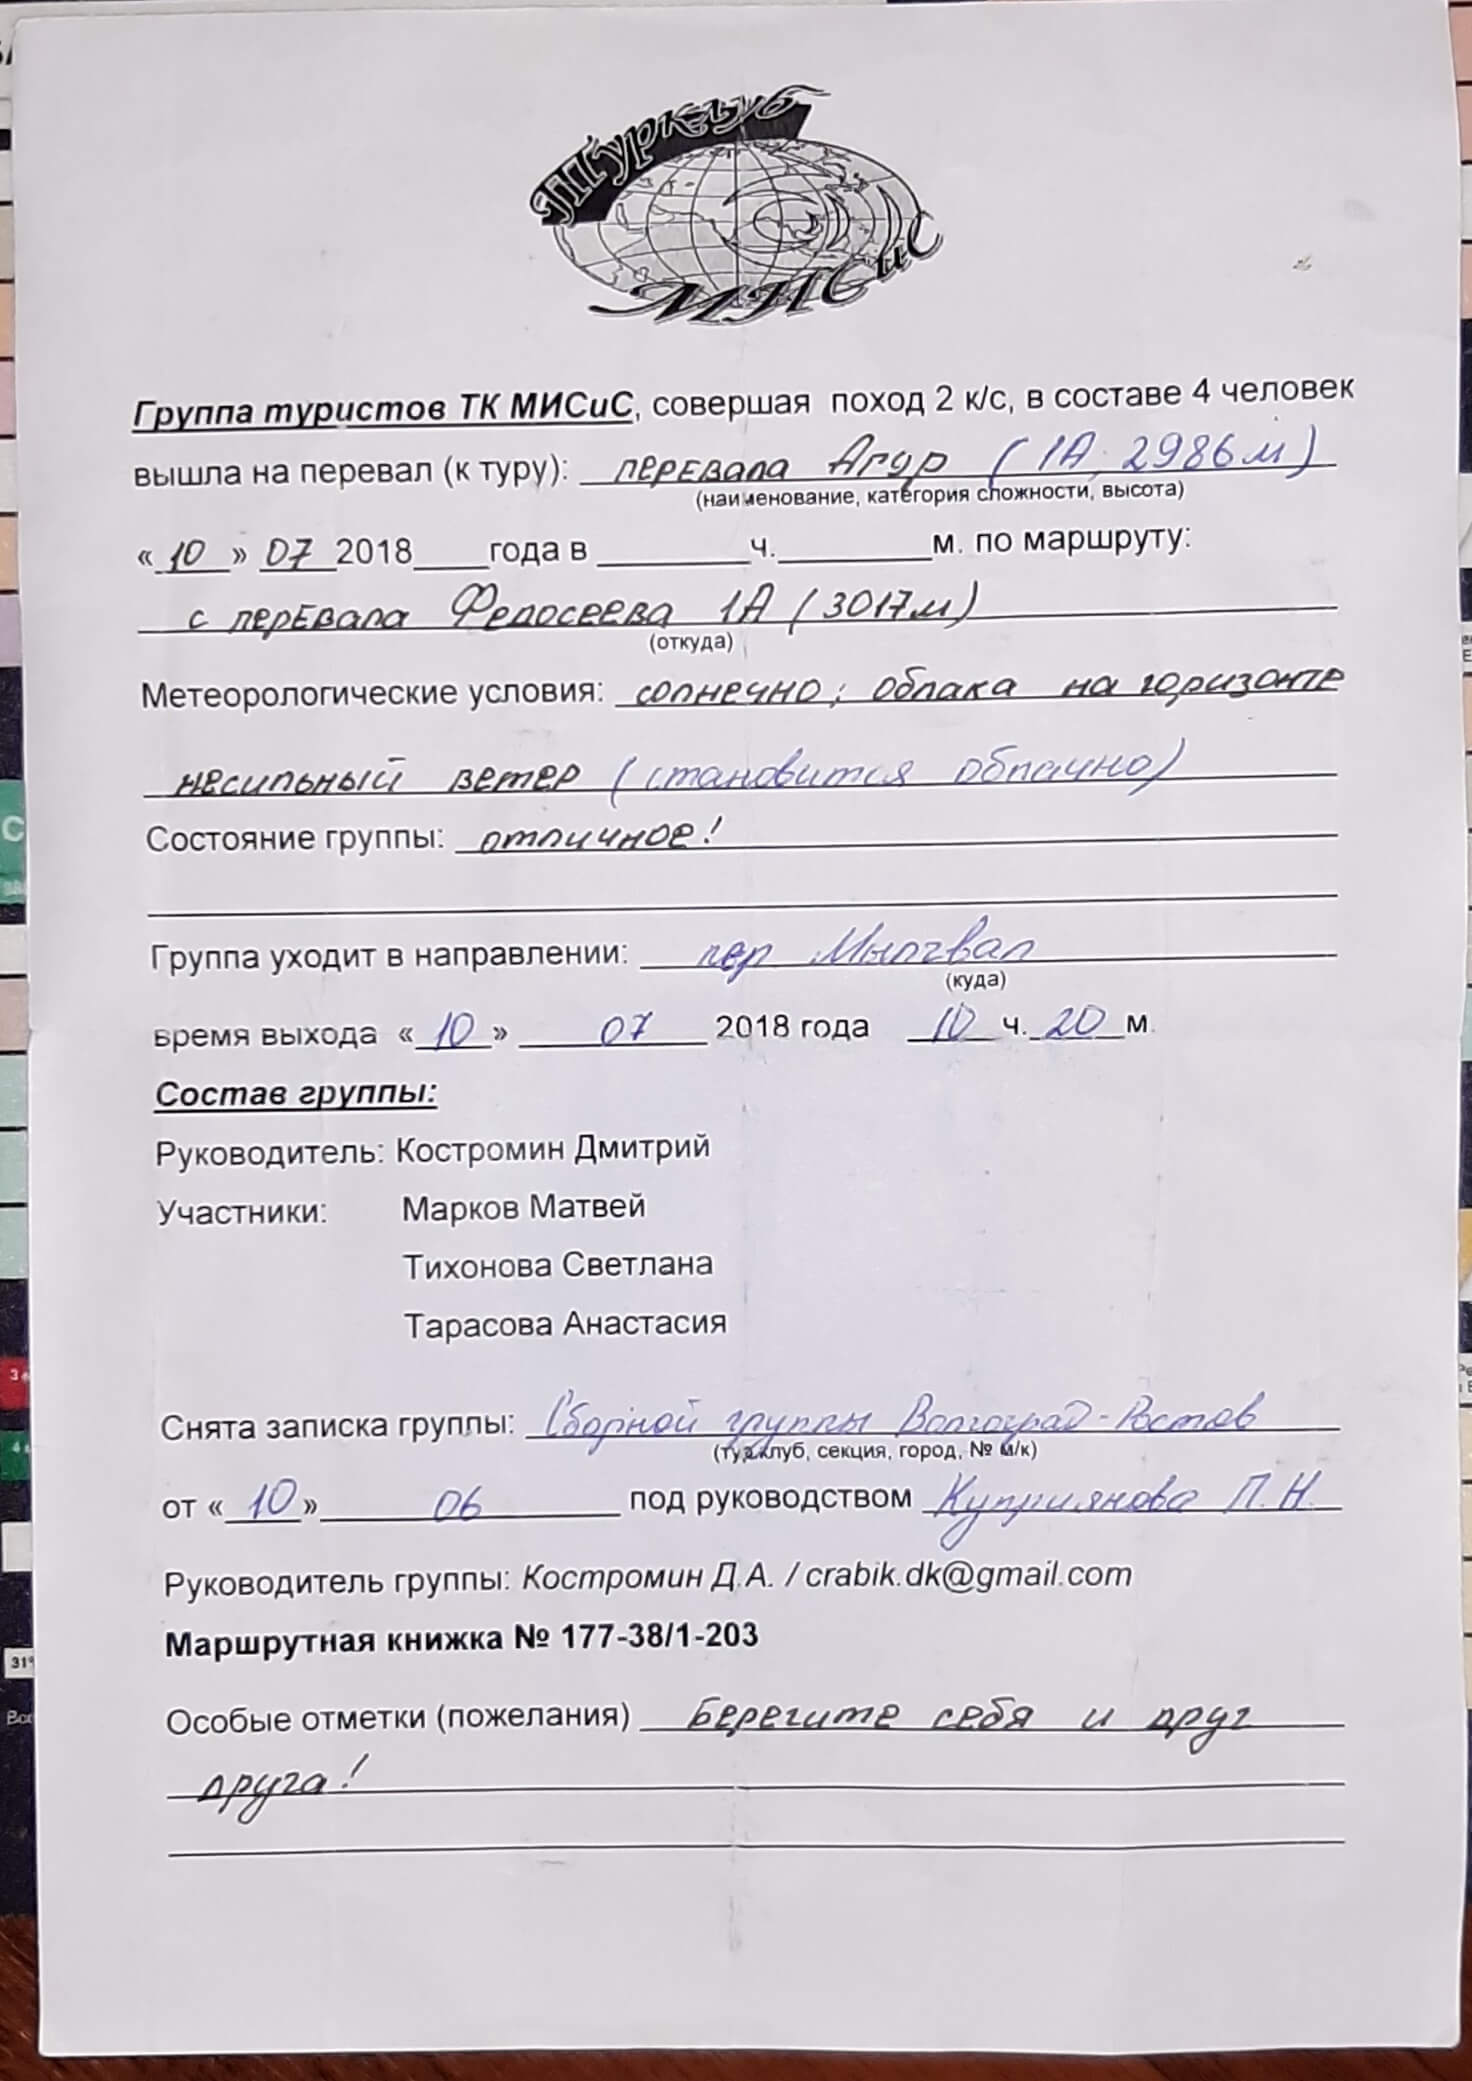 Турклуб
МИСиС
Группа туристов ТК МИСиС, совершая поход 2 к/с, в составе 4 человек
вышла на перевал (к туру): перевала Агур (1А, 2986м)
(наименование, категория сложности, высота)
«10» 07 2018____года в ________ч.________м. по маршруту:
с перевала Федосеева 1А (3017м)
(откуда)
Метеорологические условия: солнечно; облака на горизонте
несильный ветер (становится облачно)
Состояние группы: отличное!
Группа уходит в направлении: пер Мылгвал
(куда)
время выхода «10» 07 2018 года 10 ч. 20 м.
Состав группы:
Руководитель: Костромин Дмитрий
Участники: Марков Матвей
Тихонова Светлана
Тарасова Анастасия
Снята записка группы: Сборной группы Волгоград-Ростов
(турклуб, секция, город, № м/к)
от «10» 06 под руководством Куприянова П.Н.
Руководитель группы: Костромин Д.А. / crabik.dk@gmail.com
Маршрутная книжка № 177-38/1-203
Особые отметки (пожелания) Берегите себя и друг
друга!